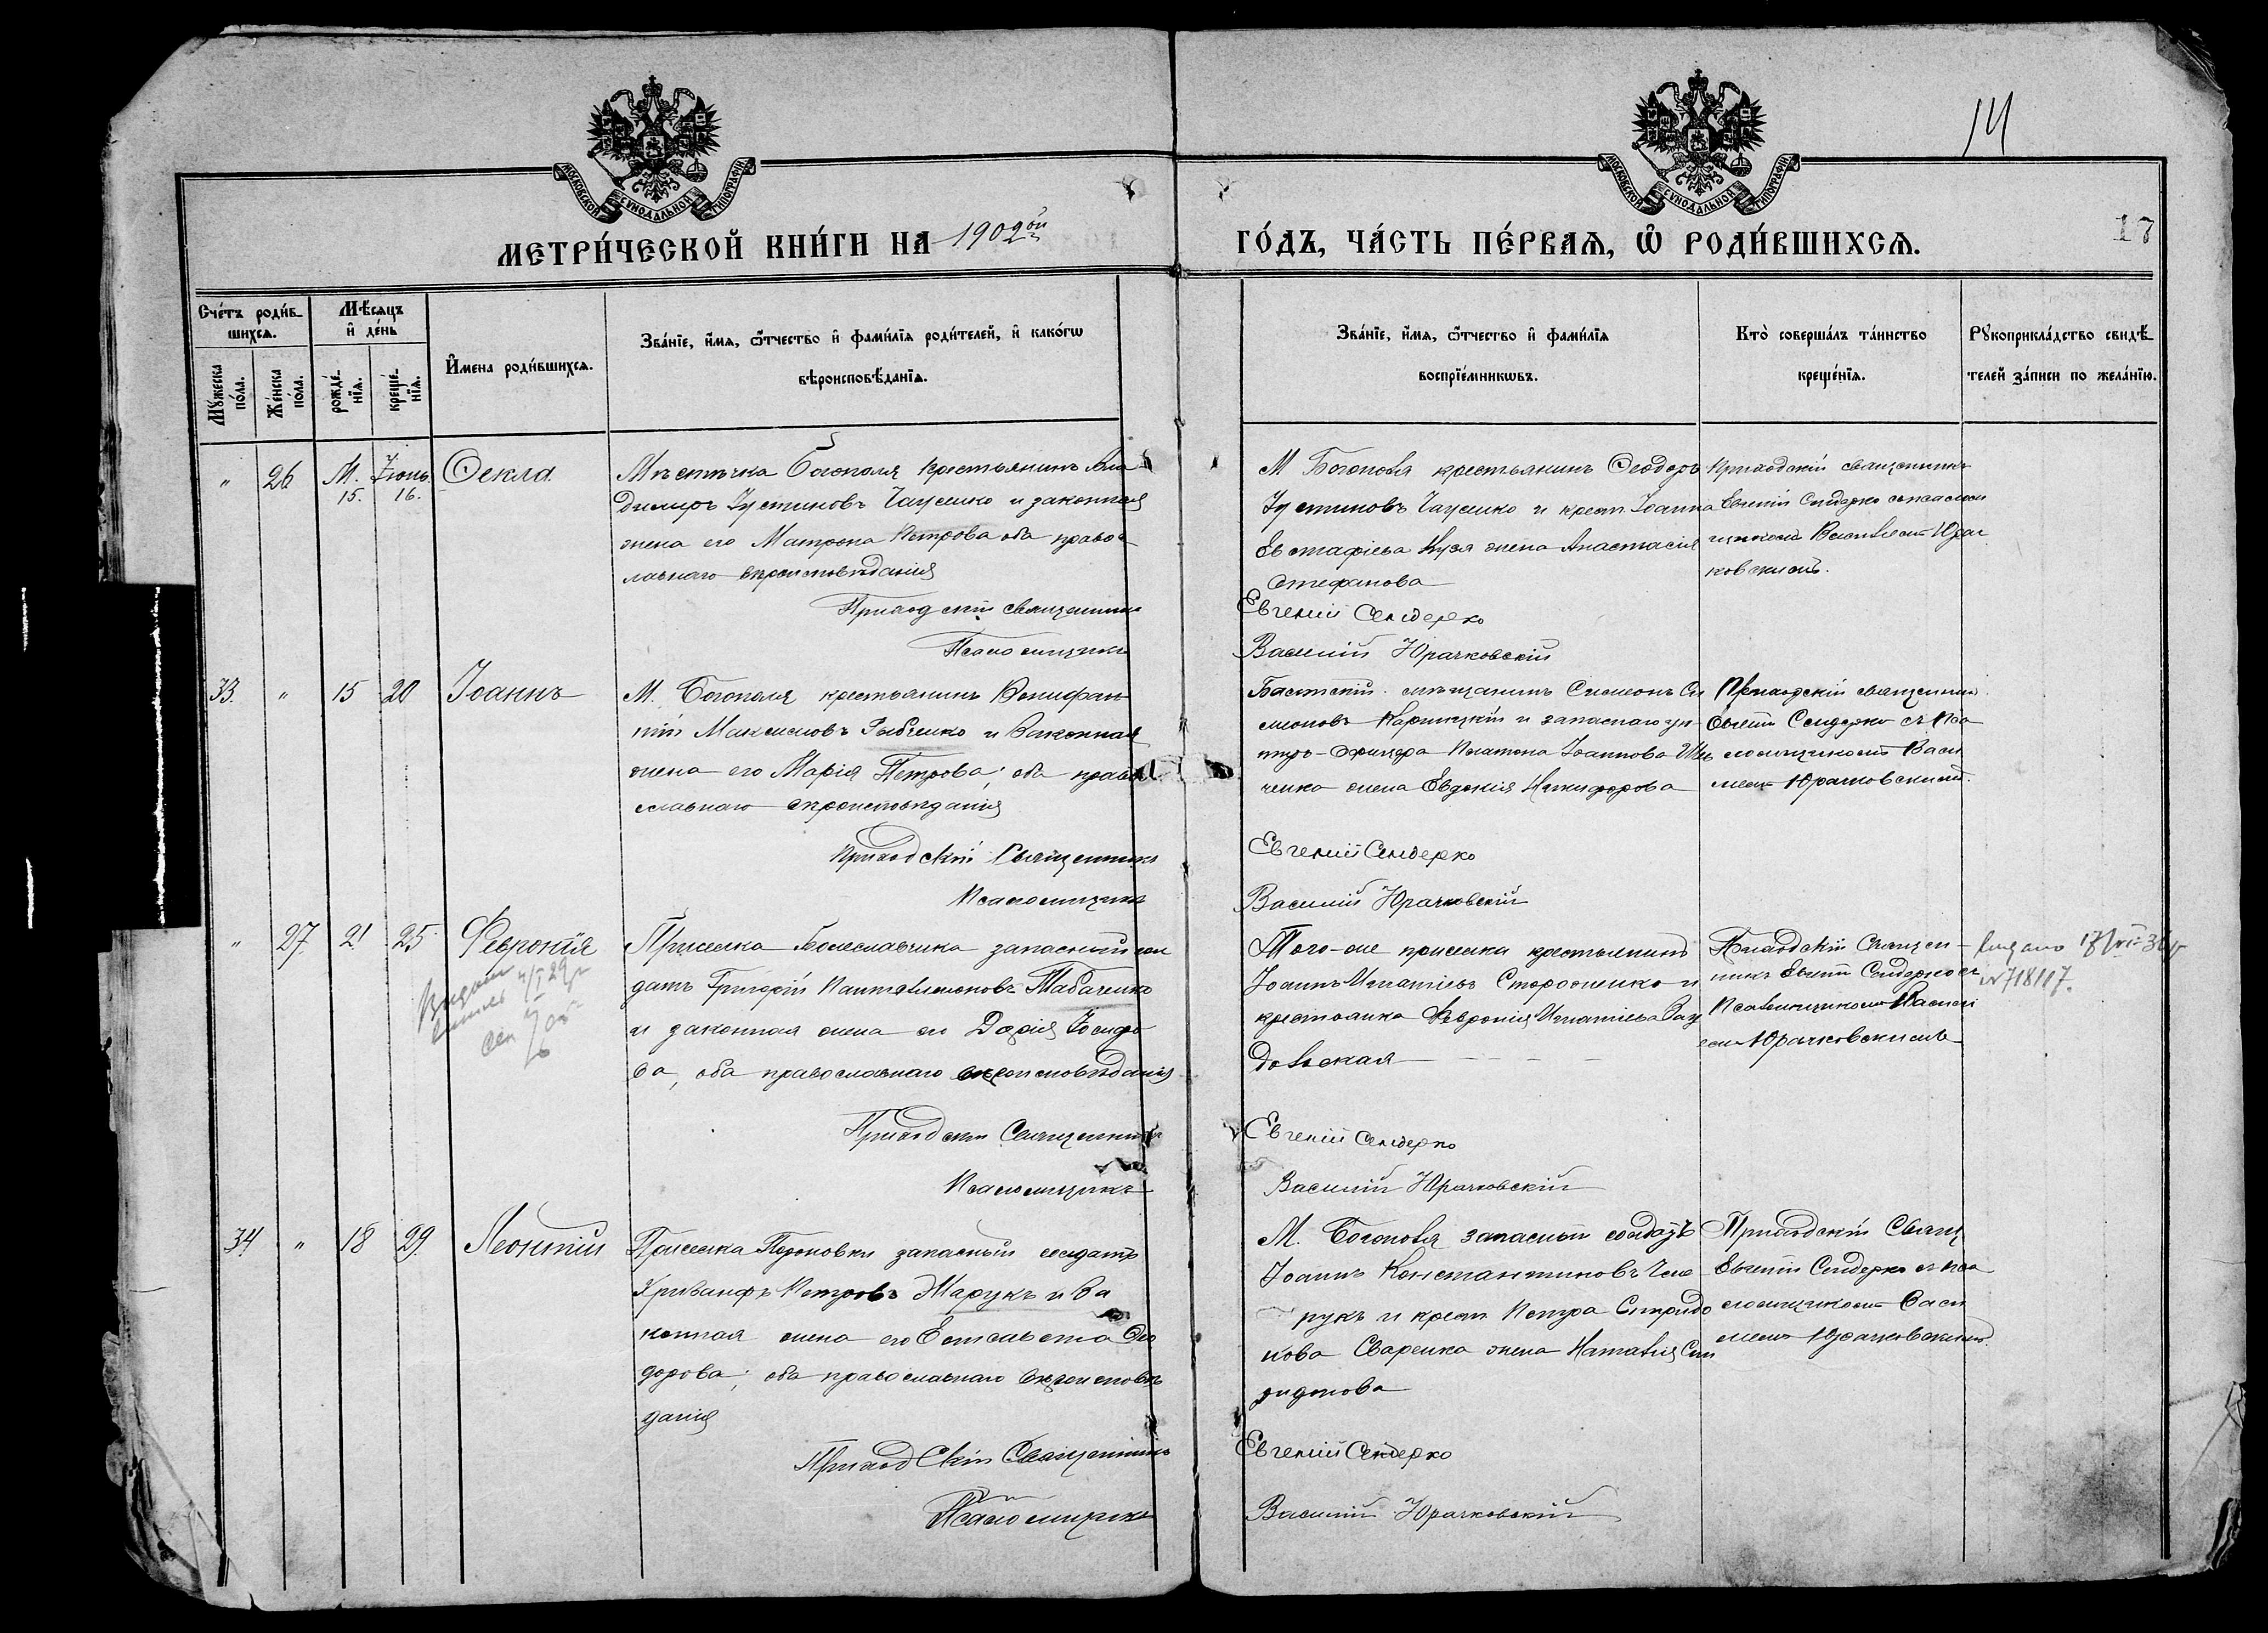 14
17
МОСКОВСКОЙ СѴНОДАЛЬНОЙ ТИПОГРАФІИ
МОСКОВСКОЙ СѴНОДАЛЬНОЙ ТИПОГРАФІИ
МЕТРИ́ЧЕСКОЙ КНИ́ГИ НА 1902ой
ГО́ДЪ, ЧА́СТЬ ПЕ́РВАѦ, Ѿ РОДИ́ВШИХСѦ.
Сче́тъ роди́в-
шихсѧ.
Мꙋ́жеска по́ла.
Же́нска по́ла.
Мѣ́сѧцъ
и҆ де́нь
рожде́-
нїѧ.
креще́-
нїѧ.
И҆мена роди́вшихсѧ.
Зва́нїе, и҆́мѧ, ѻ҆́тчество и҆ фами́лїѧ роди́телей, и҆ како́гѡ
вѣроисповѣ́данїѧ.
Зва́нїе, и҆́мѧ, ѻ҆́тчество и҆ фами́лїѧ
воспрїе́мникѡвъ.
Кто̀ соверша́лъ та́инство
креще́нїѧ.
Рꙋкоприкла́дство свидѣ́-
телей за́писи по жела́нїю.
" 26 М. 15. Іюнь. 16. Ѳекла
Мѣстечка Богополя крестьянинъ Вла
димиръ Іустиновъ и законная
жена его Матрона Петрова оба право-
славнаго вѣроисповѣданія
Приходскій священникъ
Псаломщикъ
М Богополя крестьянинъ Ѳеодоръ
Іустиновъ и крест. Іоанна
Евстафіева жена Анастасія
Стефанова
Евгеній Сендерко
Василій Юрачковскій
Приходскій священникъ
Евгеній Сендерко съ псалом
щикомъ Василіемъ Юрач
ковскимъ.
33. " 15 20 Іоаннъ
М. Богополя крестьянинъ Вонифан-
тій Максимовъ Рыбченко и законная
жена его Марія Петрова; оба право
славнаго вѣроисповѣданія
Приходскій Священникъ
Псаломщикъ
мѣщанинъ Симеонъ Си
меоновъ и запаснаго ун-
теръ-офицера Платона Іоаннова
ченка жена Евдокія Никифорова
Евгеній Сендерко
Василій Юрачковскій
Приходскій священникъ
Евгеній Сендерко съ пса
ломщикомъ Васи
ліемъ Юрачковскимъ.
" 27. 21 25. Февронія
Приселка Болеславчика запасный сол
датъ Григорій Пантелимоновъ Табаченко
и законная жена его Дарія Іосифо
ва, оба православнаго вѣроисповѣданія
Приходскій Священникъ
Псаломщикъ
Того-же приселка крестьянинъ
Іоаннъ Игнатіевъ Стороженко и
крестьянка Февронія Игнатіева
Евгеній Сендерко
Василій Юрачковскій
Приходскій Священ-
никъ Евгеній Сендерко съ
Псаломщикомъ Васили
емъ Юрачковскимъ
№718117.
34. " 18 29. Леонтій
Приселка запасный солдатъ
Хрисанфъ Петровъ Марукъ и за
конная жена его Елисавета Ѳео
дорова; оба православнаго вѣроисповѣ
данія
Приходскій Священникъ
Псаломщикъ
М. Богополя запасный солдатъ
Іоаннъ Константиновъ Чеме
рукъ и крест. Петра Спиридо
нова жена Наталія Спи
ридонова
Евгеній Сендерко
Василій Юрачковскій
Приходскій Священ
Евгеній Сендерко съ пса
ломщикомъ Васи
ліемъ Юрачковскимъ.